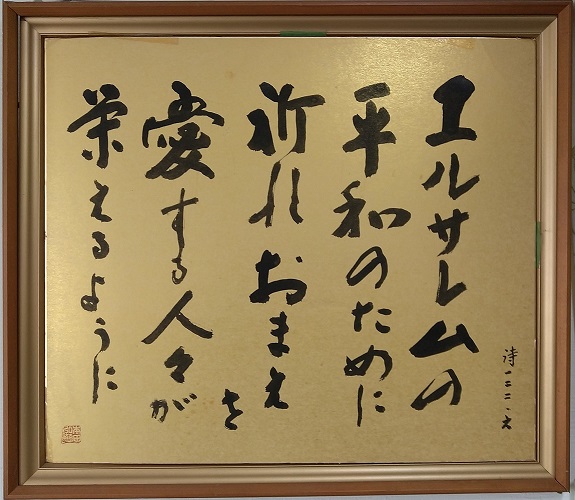 エルサレムの
平和のために
祈れおまえを
愛する人々が
栄えるように
詩一二二・六